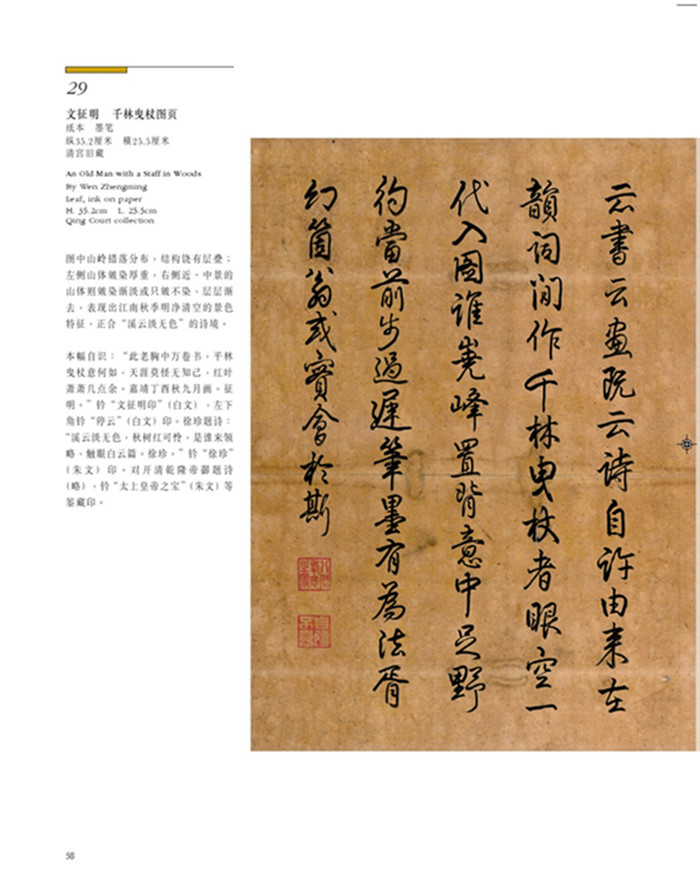 29
文征明　千林曳杖图页
纸本　墨笔
纵35.2厘米　横25.5厘米
清宫旧藏
An Old Man with a Staff in Woods
By Wen Zhengming
Leaf, ink on paper
H. 35.2cm L. 25.5cm
Qing Court collection
图中山岭错落分布，结构饶有层叠；
左侧山体皴染厚重，右侧近、中景的
山体则皴染渐淡或只皴不染，层层渐
去，表现出江南秋季明净清空的景色
特征，正合“溪云淡无色”的诗境。
本幅自识：“此老胸中万卷书，平林
曳杖意何如，天涯莫怪无知己，红叶
萧萧几点余。嘉靖丁酉秋九月画。征
明。”钤“文征明印”（白文）、左下
角钤“停云”（白文）印。徐珍题诗：
“溪云淡无色，秋树红可怜，是谁来领
略，触眼白云篇。徐珍。”钤“徐珍”
（朱文）印。对开清乾隆帝御题诗
（略），钤“太上皇帝之宝”（朱文）等
鉴藏印。
云書云畫既云詩自許由来在
韻词间作千林曳杖者眼空一
代入圖誰嶤峰置背意中足野
彴當前步過遲筆墨有為法胥
幻箇翁或實會於斯
58